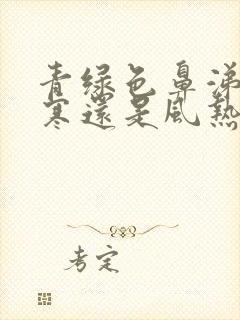 青綠色鼻涕
寒還是風熱
考定